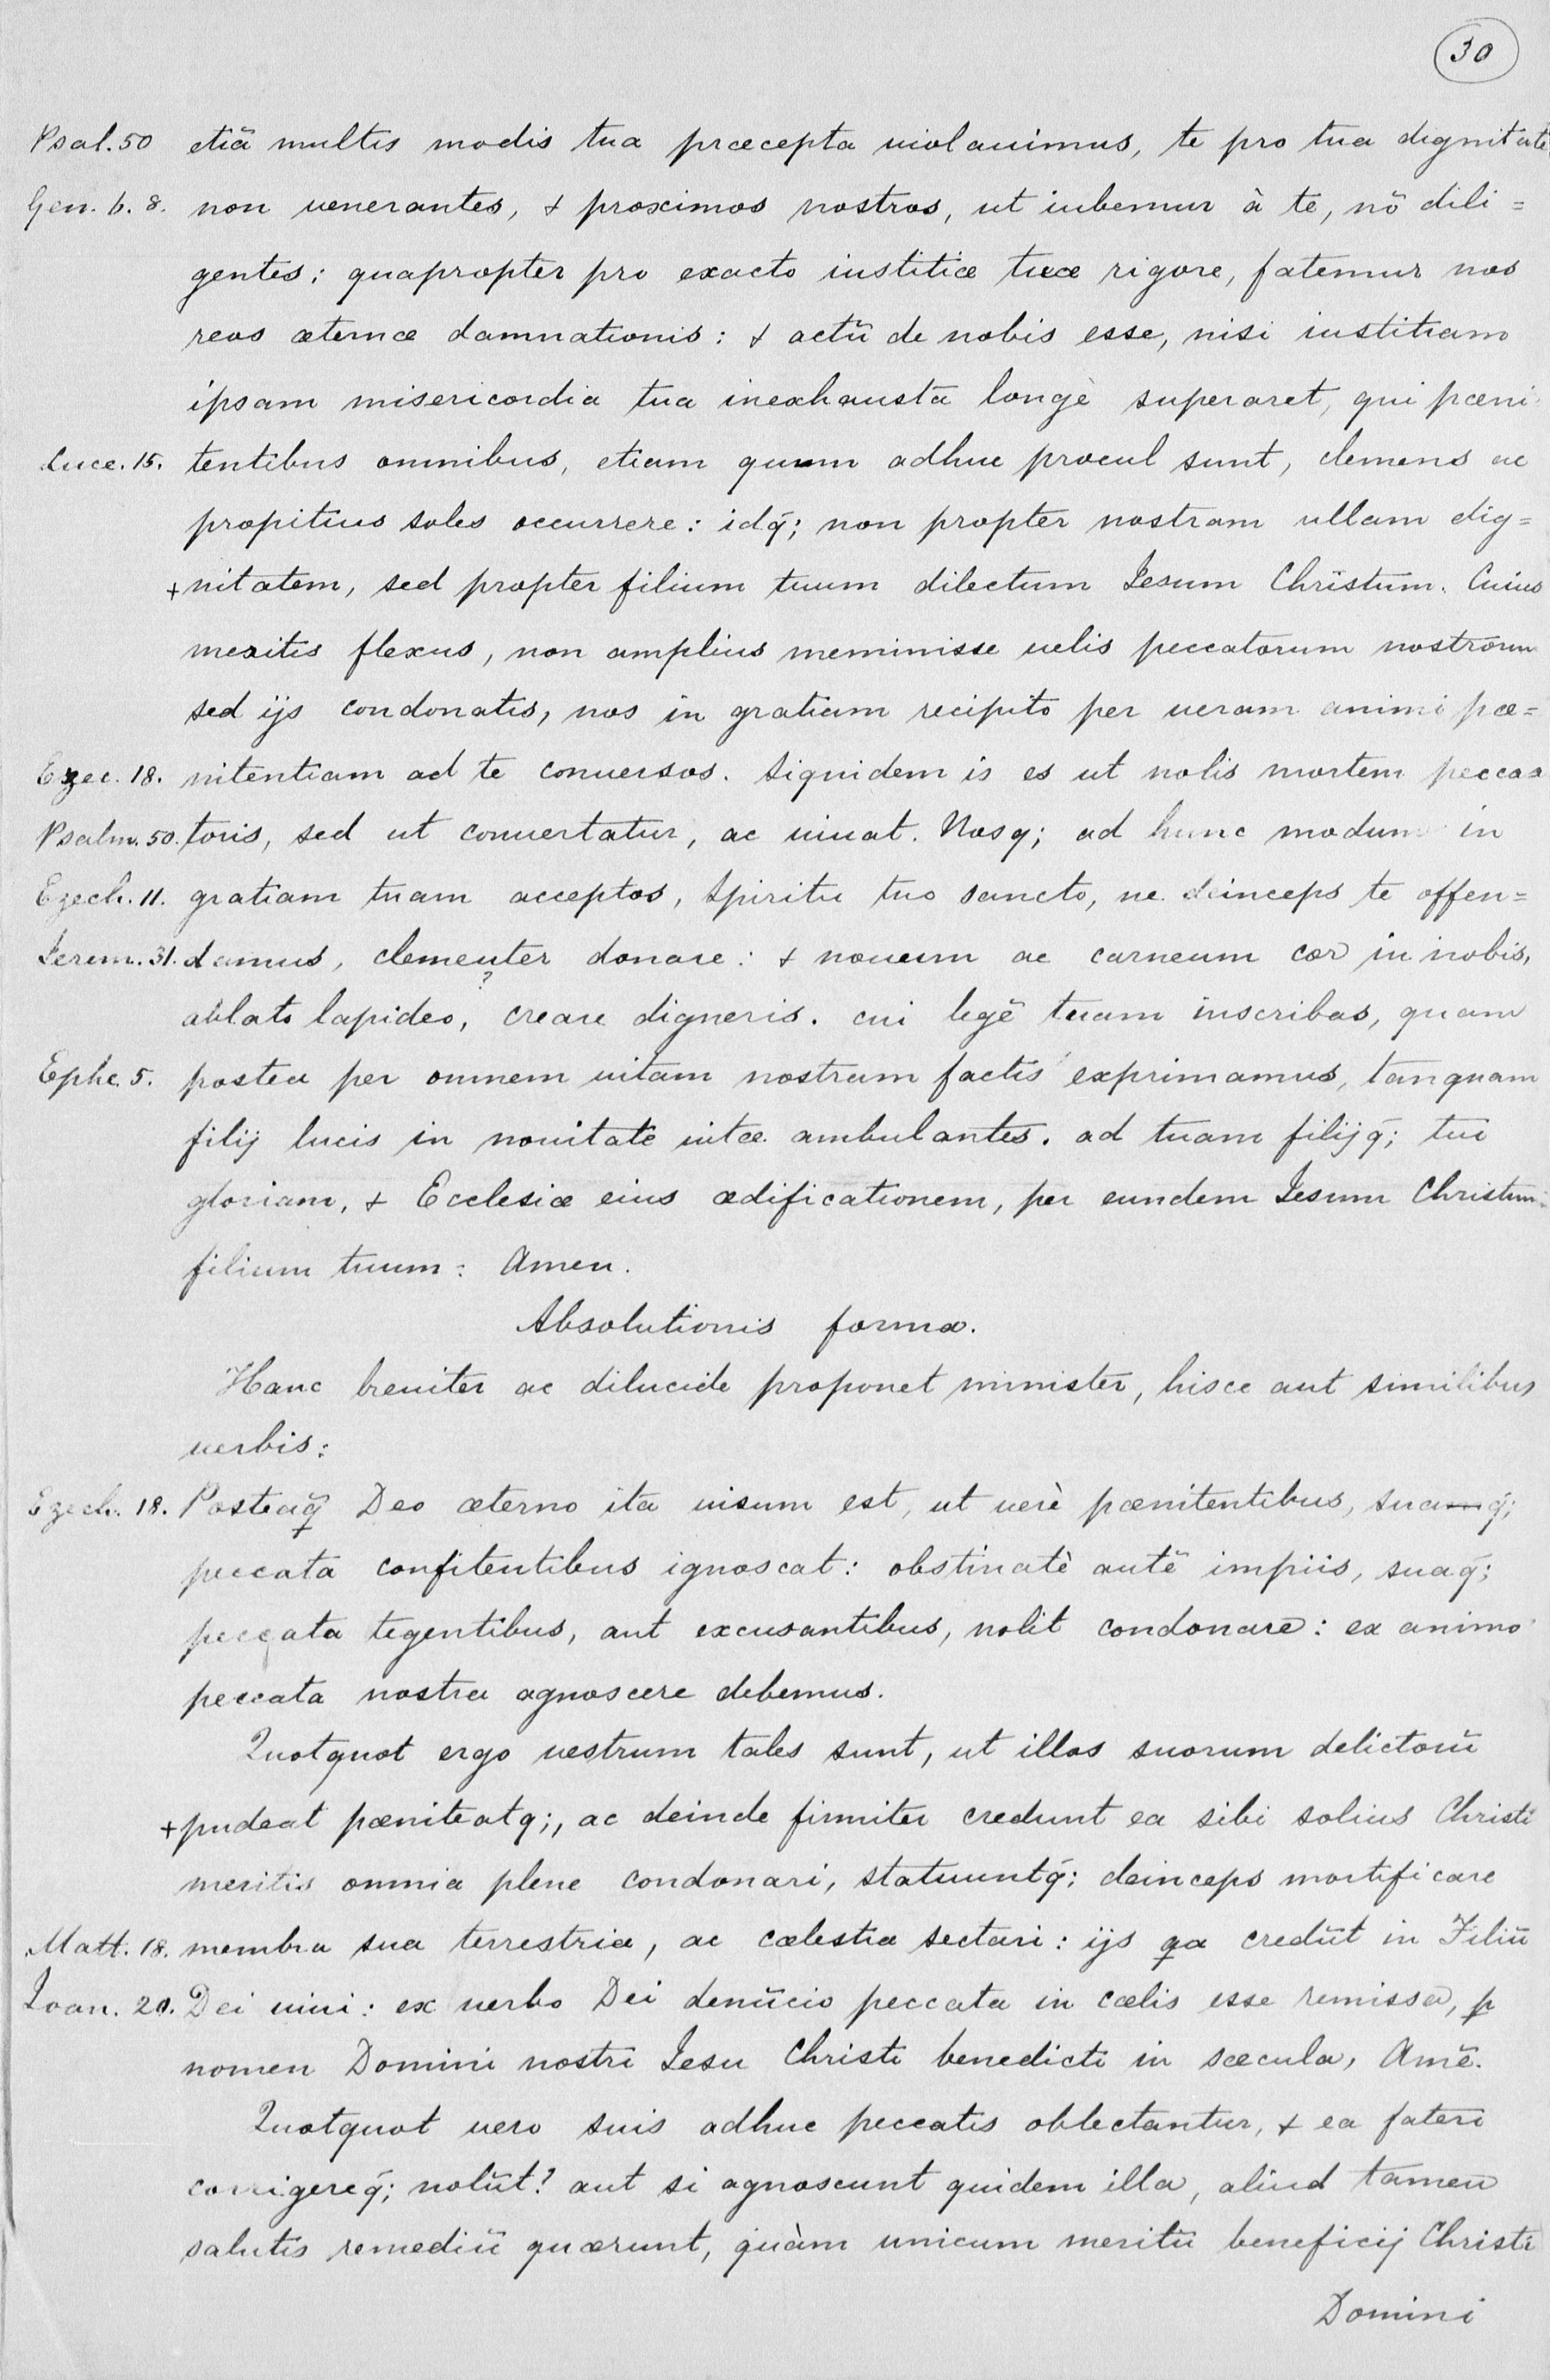 30
Psal. 50 etiā multis modis tua præcepta uiolauimus, te pro tua dignitate
Gen. 6. 8. non uenerantes, & proximos nostros, ut iubemur à te, nō dili=
gentes: quapropter pro exacto iustitiæ tuæ rigore, fatemur nos
reos æternæ damnationis: & actū de nobis esse, nisi iustitiam
ipsam misericordia tua inexhausta longè superaret, qui pœni
Luce. 15. tentibus omnibus, etiam quum adhuc procul sunt, clemens ac
propitius soles occurrere: idq́; non propter nostram ullam dig=
+ nitatem, sed propter filium tuum dilectum Iesum Christum. Cuius
meritis flexus, non amplius meminisse uelis peccatorum nostrorum
sed ijs condonatis, nos in gratiam recipito per ueram animi pœ=
Ezec. 18. nitentiam ad te conuersos. Siquidem is es ut nolis mortem pecca=
Psalm. 50. toris, sed ut conuertatur, ac uiuat. Nosq; ad hunc modum in
Ezech. 11. gratiam tuam acceptos, Spiritu tuo sancto, ne deinceps te offen=
Ierem. 31. damus, clementer donare: & nouum ac carneum cor in nobis,
?
ablato lapideo, creare digneris. cui legē tuam inscribas, quam
Ephe. 5. postea per omnem uitam nostram factis exprimamus, tanquam
filij lucis in nouitate uitæ ambulantes. ad tuam filijq́; tui
gloriam, & Ecclesiæ eius ædificationem, per eundem Iesum Christum
filium tuum: Amen.
Absolutionis forma.
Hanc breuiter ac dilucide proponet minister, hisce aut similibus
uerbis:
Ezech. 18. Posteaq̄ Deo æterno ita uisum est, ut uerè pœnitentibus, suaq́;
peccata confitentibus ignoscat: obstinatè autē impiis, suaq́;
peccata tegentibus, aut excusantibus, nolit condonare: ex animo
peccata nostra agnoscere debemus.
Quotquot ergo uestrum tales sunt, ut illos suorum delictorū
+ pudeat pœniteatq;, ac deinde firmiter credunt ea sibi solius Christi
meritis omnia plene condonari, statuuntq́: deinceps mortificare
Matt. 18. membra sua terrestria, ac cœlestia sectari: ijs qa credūt in Filiū
Ioan. 20. Dei uiui: ex uerbo Dei denūcio peccata in cœlis esse remissa, ꝑ
nomen Domini nostri Iesu Christi benedicti in sæcula, Amē.
Quotquot uero suis adhuc peccatis oblectantur, & ea fateri
corrigereq́; nolūt? aut si agnoscunt quidem illa, aliud tamen
salutis remediū quærunt, quàm unicum meritū beneficij Christi
Domini